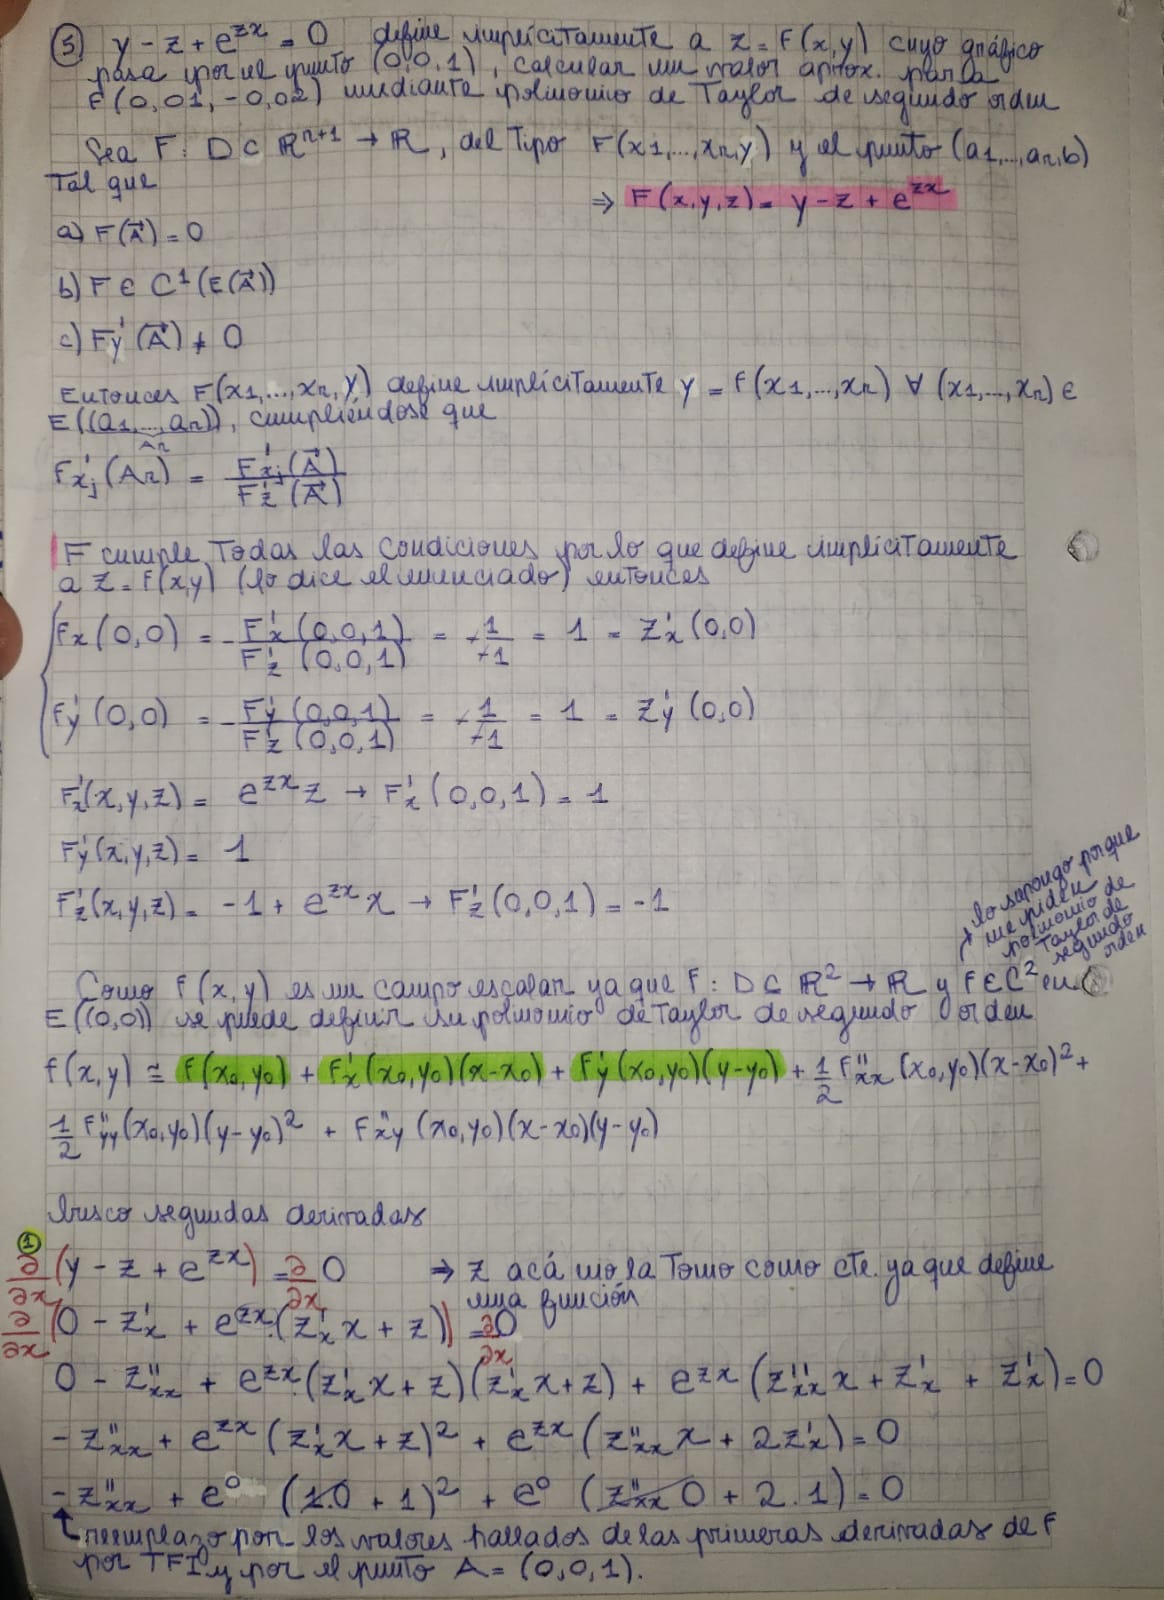 ⑤ y - z + e^{zx} = 0 define implícitamente a z = f(x,y) cuyo gráfico
pasa por el punto (0,0,1), calcular un valor aprox. para
f(0,01,-0,02) mediante polinomio de Taylor de segundo orden
Sea F: D ⊂ ℝ^{n+1} → ℝ, del tipo F(x1,...,xn,y) y el punto (a1,...,an,b)
tal que
⇒ F(x,y,z) = y - z + e^{zx}
a) F(A⃗) = 0
b) F ∈ C^1(E(A⃗))
c) Fy'(A⃗) ≠ 0
Entonces F(x1,...,xn,y) define implícitamente y = f(x1,...,xn) ∀ (x1,...,xn) ∈
E((a1,...,an)), cumpliéndose que
An
Fx'j(An) = Fx'j(A⃗) / Fz'(A⃗)
F cumple todas las condiciones por lo que define implícitamente
a z = f(x,y) (lo dice el enunciado) entonces
fx(0,0) = - Fx'(0,0,1) / Fz'(0,0,1) = - 1/-1 = 1 = Zx'(0,0)
fy'(0,0) = - Fy'(0,0,1) / Fz'(0,0,1) = - 1/-1 = 1 = Zy'(0,0)
Fx'(x,y,z) = e^{zx} z → Fx'(0,0,1) = 1
Fy'(x,y,z) = 1
Fz'(x,y,z) = -1 + e^{zx} x → Fz'(0,0,1) = -1
lo supongo porque
me piden
polinomio de
Taylor de
segundo
orden
Como f(x,y) es un campo escalar ya que f: D ⊂ ℝ² → ℝ y f ∈ C² en
E((0,0)) se puede definir su polinomio de Taylor de segundo orden
f(x,y) ≅ f(x0,y0) + fx'(x0,y0)(x-x0) + fy'(x0,y0)(y-y0) + 1/2 f''xx(x0,y0)(x-x0)² +
1/2 f''yy(x0,y0)(y-y0)² + f''xy(x0,y0)(x-x0)(y-y0)
busco segundas derivadas
①
∂/∂x (y - z + e^{zx}) = ∂/∂x 0 ⇒ z acá no la tomo como cte. ya que define
una función
∂/∂x (0 - z'x + e^{zx}.(z'x x + z)) = ∂/∂x 0
0 - z''xx + e^{zx}.(z'x x + z)(z'x x + z) + e^{zx} (z''xx x + z'x + z'x) = 0
- z''xx + e^{zx} (z'x x + z)² + e^{zx} (z''xx x + 2z'x) = 0
- z''xx + e^0 (1.0 + 1)² + e^0 (z''xx 0 + 2.1) = 0
↑ reemplazo por los valores hallados de las primeras derivadas de f
por TFI y por el punto A = (0,0,1).